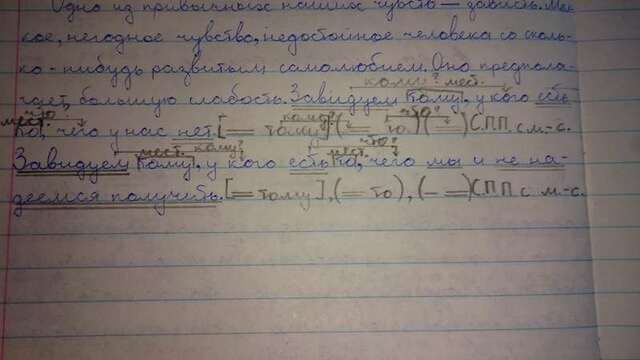 Одно из привычных наших чувств — зависть. Мел-
кое, негодное чувство, недостойное человека со сколь-
ко-нибудь развитым самолюбием. Оно предпола-
кому? мест.
гает большую слабость. Завидуем тому, у кого есть
мест. что кому? что?
то, чего у нас нет. [== тому], (== то), ( ) С.П.П. с м.-с.
мест. кому? что? мест.
Завидуем тому, у кого есть то, чего мы и не на-
деемся получить. [== тому], (== то), (– ==) С.П.П. с м.-с.